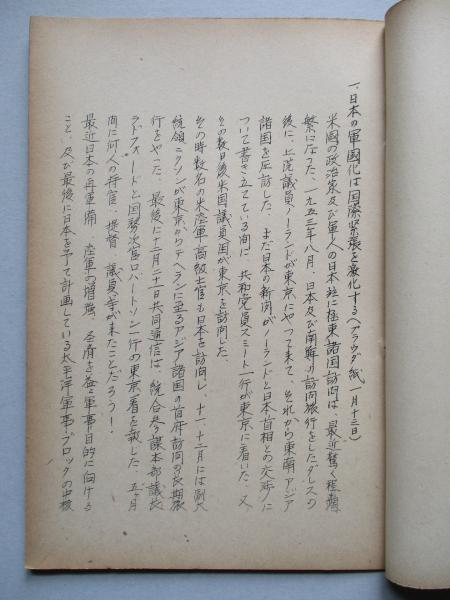 一、日本の軍国化は国際緊張を激化する（プラウダ紙一月十三日）
米国の政治家及び軍人の日本並に極東諸国訪問は、最近驚く程頻
繁になった。一九五三年八月、日本及び南鮮の訪問旅行をしたダレスの
後に、上院議員ノーランドが東京にやって来て、それから東南アジア
諸国を歴訪した。まだ日本の新聞がノーランドと日本首相との交渉に
ついて書き立てている間に、共和党員スミート一行が東京に着いた。又
その数日後米国議員団が東京を訪問した。
その時数名の米陸軍高級士官も日本を訪問し、十一、十二月には副大
統領ニクソンが東京からテヘランに至るアジア諸国の首府訪問の長期旅
行をやった。最後に十二月二十一日共同通信は、統合参謀本部議長
ラドフォードと国務次官ロバートソン一行の東京着を報じた。五ヶ月
間に何人の将官、提督、議員等が来たことだろう！
最近日本の再軍備、陸軍の増強、全府を益々軍事目的に向ける
こと、及び最後に日本を予て計画している太平洋軍事ブロックの中核